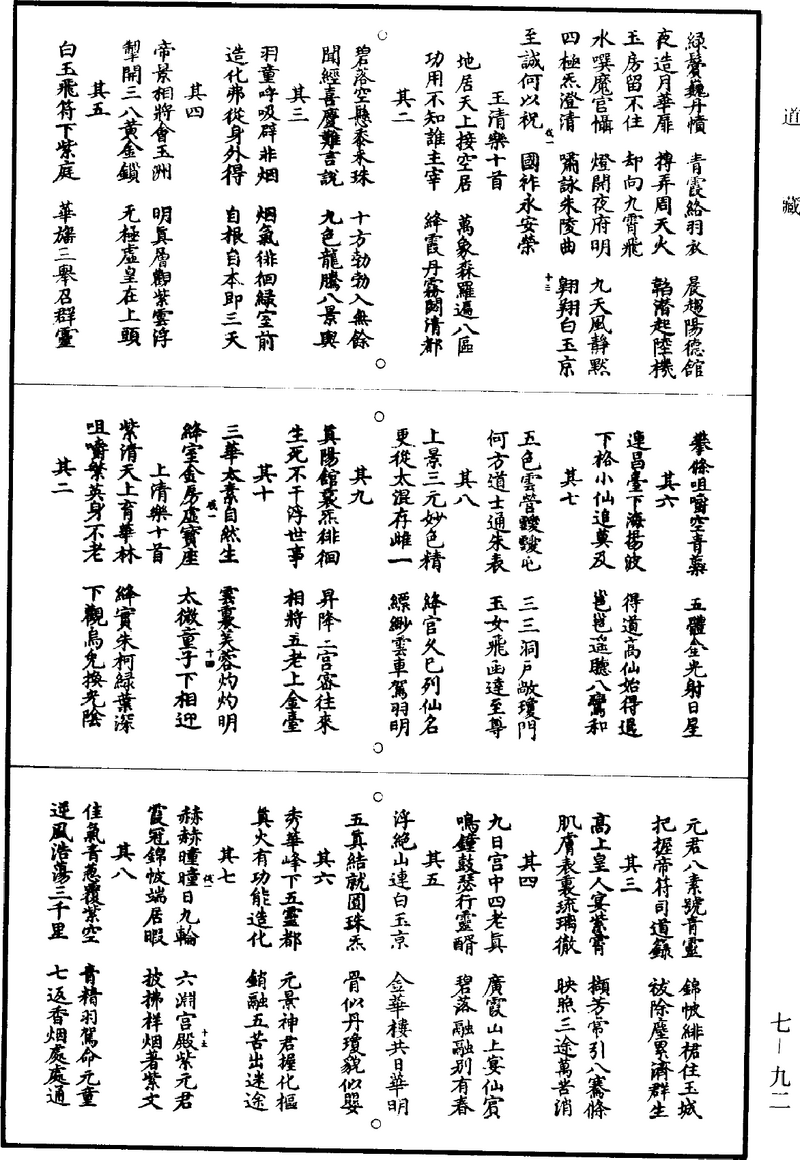 道藏
綠鬢巍丹幘　青霞絡羽衣　晨趨陽德館
夜造月華扉　搏弄周天火　韜潛起陸機
玉房留不住　却向九霄飛
水噀魔官懾　燈開夜府明　九天風靜默
四極炁澄清　嘯詠朱陵曲　翱翔白玉京
至誠何以祝　國祚永安榮
玉清樂十首
地居天上接空居　萬象森羅遍八區
功用不知誰主宰　絳霞丹霧閟清都
其二
碧落空懸黍米珠　十方勃勃入無餘
聞經喜慶難言說　九色龍騰八景輿
其三
羽童呼吸辟非烟　烟氣徘徊綠室前
造化弗從身外得　自根自本即三天
其四
帝景相將會玉洲　明真層觀紫雲浮
掣開三八黃金鎖　无極虛皇在上頭
其五
白玉飛符下紫庭　華旛三舉召群靈
攀條咀嚼空青蘂　五體金光射日星
其六
連昌臺下海揚波　得道高仙始得過
下格小仙追莫及　邕邕遥聽八鸞和
其七
五色雲營靉靆屯　三三洞戶敞瓊門
何方道士通朱表　玉女飛函達至尊
其八
上景三元妙色精　絳官久已列仙名
更從太混存雌一　縹緲雲車駕羽明
其九
真陽館裏炁徘徊　昇降二宫密往來
生死不干浮世事　相將五老上金臺
其十
三華太素自然生　雲裏芙蓉灼灼明
絳室金房虛寶座　太微童子下相迎
上清樂十首
紫清天上育華林　絳實朱柯綠葉深
咀嚼繁英身不老　下觀烏兔換光陰
其二
元君八素號青靈　錦帔緋裙住玉城
把握帝符司道籙　祓除塵累濟群生
其三
高上皇人宴紫霄　擷芳常引八騫條
肌膚表裏琉璃徹　映照三途萬苦消
其四
九日宫中四老真　廣霞山上宴仙賓
鳴鐘鼓瑟行靈醑　碧落融融別有春
其五
浮絕山連白玉京　金華樓共日華明
五真結就圓珠炁　骨似丹瓊貌似嬰
其六
秀華峰下五靈都　元景神君握化樞
真火有功能造化　銷融五苦出迷途
其七
赫赫瞳瞳日九輪　六淵宫殿紫元君
霞冠錦帔端居暇　披拂祥烟著紫文
其八
佳氣青蔥覆紫空　青精羽駕命元童
逆風浩蕩三千里　七返香烟處處通
七－九二